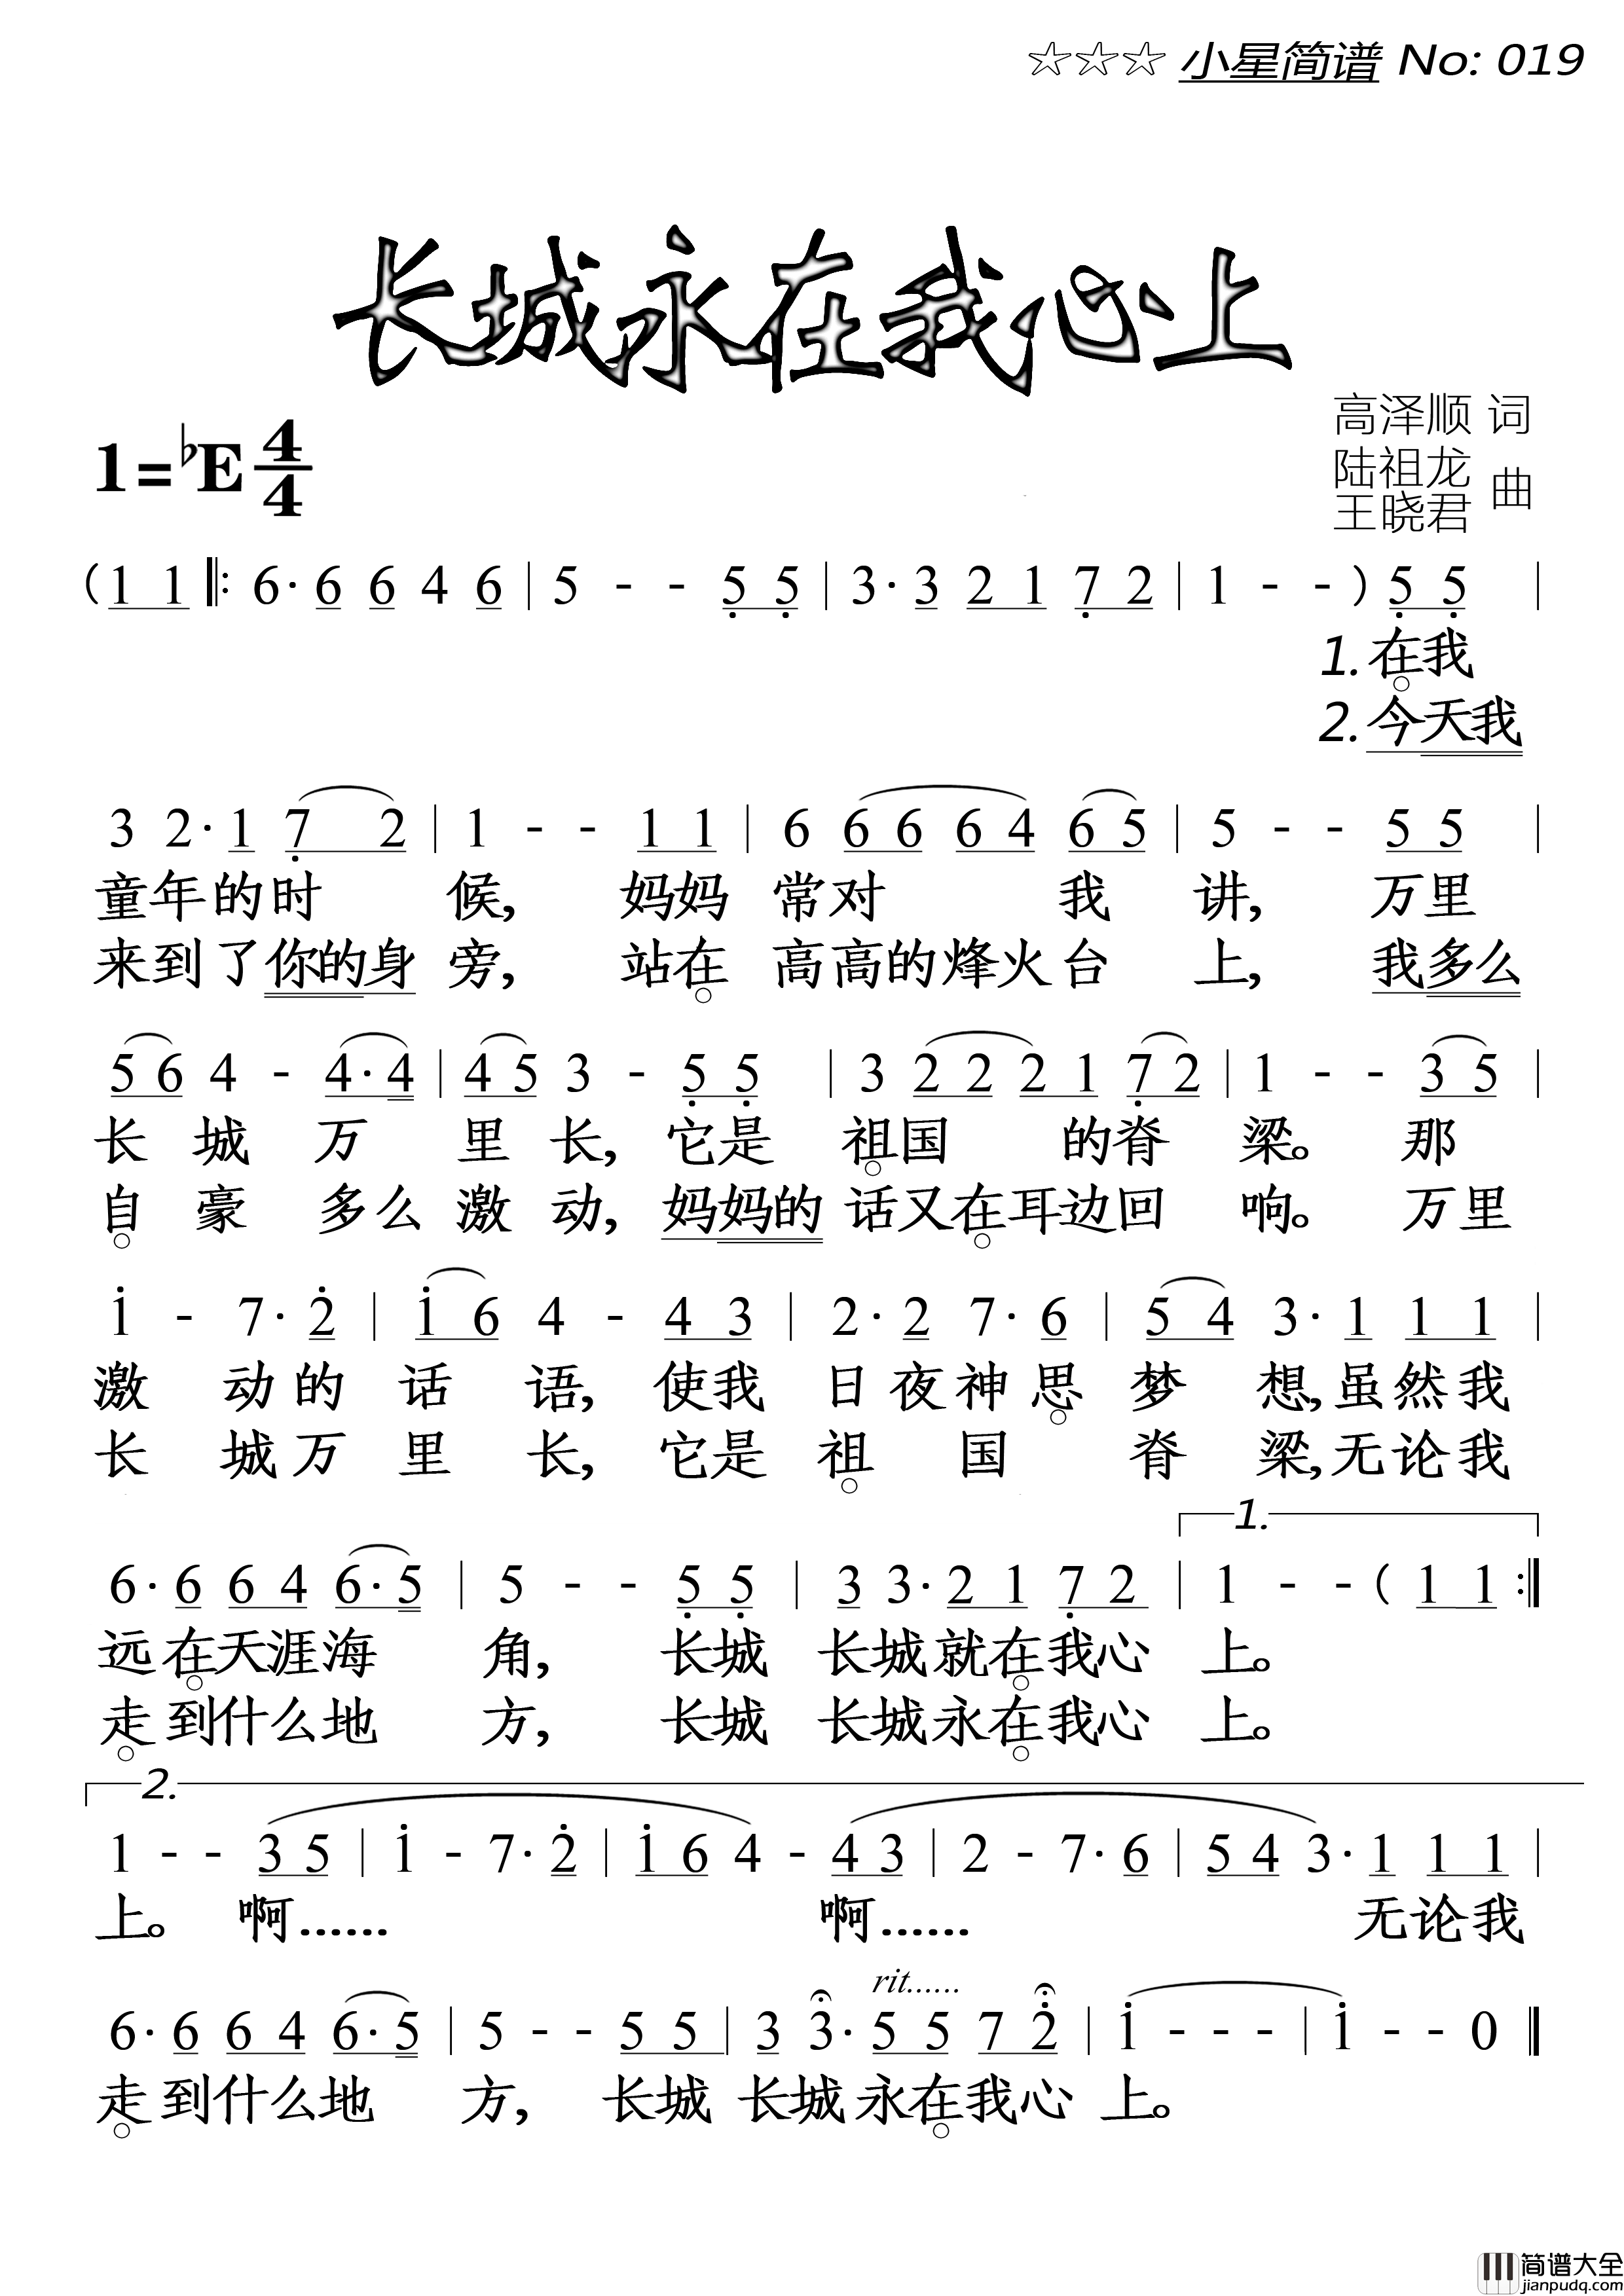 ☆☆☆ 小星简谱 No: 019
长城永在我心上
高泽顺 词
1=♭E 4/4
陆祖龙
王晓君 曲
( 1 1 ‖: 6· 6 6 4 6 | 5 - - 5̣ 5̣ | 3· 3 2 1 7̣ 2 | 1 - - ) 5̣ 5̣ |
1. 在我
2. 今天我
3 2· 1 7̣ 2 | 1 - - 1 1 | 6 6 6 6 4 6 5 | 5 - - 5 5 |
童年的时 候, 妈妈 常对 我 讲, 万里
来到了你的身 旁, 站在 高高的烽火台 上, 我多么
5 6 4 - 4· 4 | 4 5 3 - 5̣ 5̣ | 3 2 2 2 1 7̣ 2 | 1 - - 3 5 |
长 城 万 里 长, 它是 祖国 的脊 梁。 那
自 豪 多么 激 动, 妈妈的 话又在耳边回 响。 万里
1̇ - 7· 2̇ | 1̇ 6 4 - 4 3 | 2· 2 7· 6 | 5 4 3· 1 1 1 |
激 动的 话 语, 使我 日夜神思 梦 想, 虽然我
长 城万 里 长, 它是 祖 国 脊 梁, 无论我
1.
6· 6 6 4 6· 5 | 5 - - 5̣ 5̣ | 3 3· 2 1 7̣ 2 | 1 - - ( 1 1 :‖
远在天涯海 角, 长城 长城就在我心 上。
走到什么地 方, 长城 长城永在我心 上。
2.
1 - - 3 5 | 1̇ - 7· 2̇ | 1̇ 6 4 - 4 3 | 2 - 7· 6 | 5 4 3· 1 1 1 |
上。 啊…… 啊…… 无论我
rit......
6· 6 6 4 6· 5 | 5 - - 5 5 | 3 3· 5 5 7 2̇ | 1̇ - - - | 1̇ - - 0 ‖
走到什么地 方, 长城 长城 永在我心 上。
简谱大全
jianpudq.com